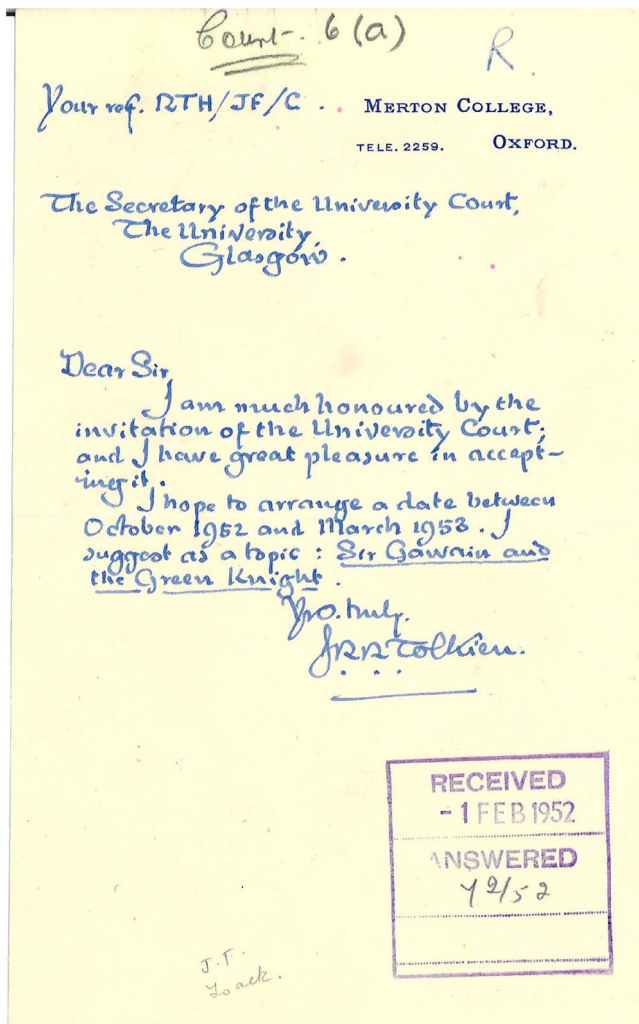 Court. 6 (a)
R.
Your ref. RTH/JF/C. MERTON COLLEGE,
TELE. 2259. OXFORD.
The Secretary of the University Court,
The University,
Glasgow.
Dear Sir,
I am much honoured by the
invitation of the University Court;
and I have great pleasure in accept-
ing it.
I hope to arrange a date between
October 1952 and March 1953. I
suggest as a topic: Sir Gawain and
the Green Knight.
Yrs. truly.
JRRTolkien.
RECEIVED
-1 FEB 1952
ANSWERED
7 2/52
J.F.